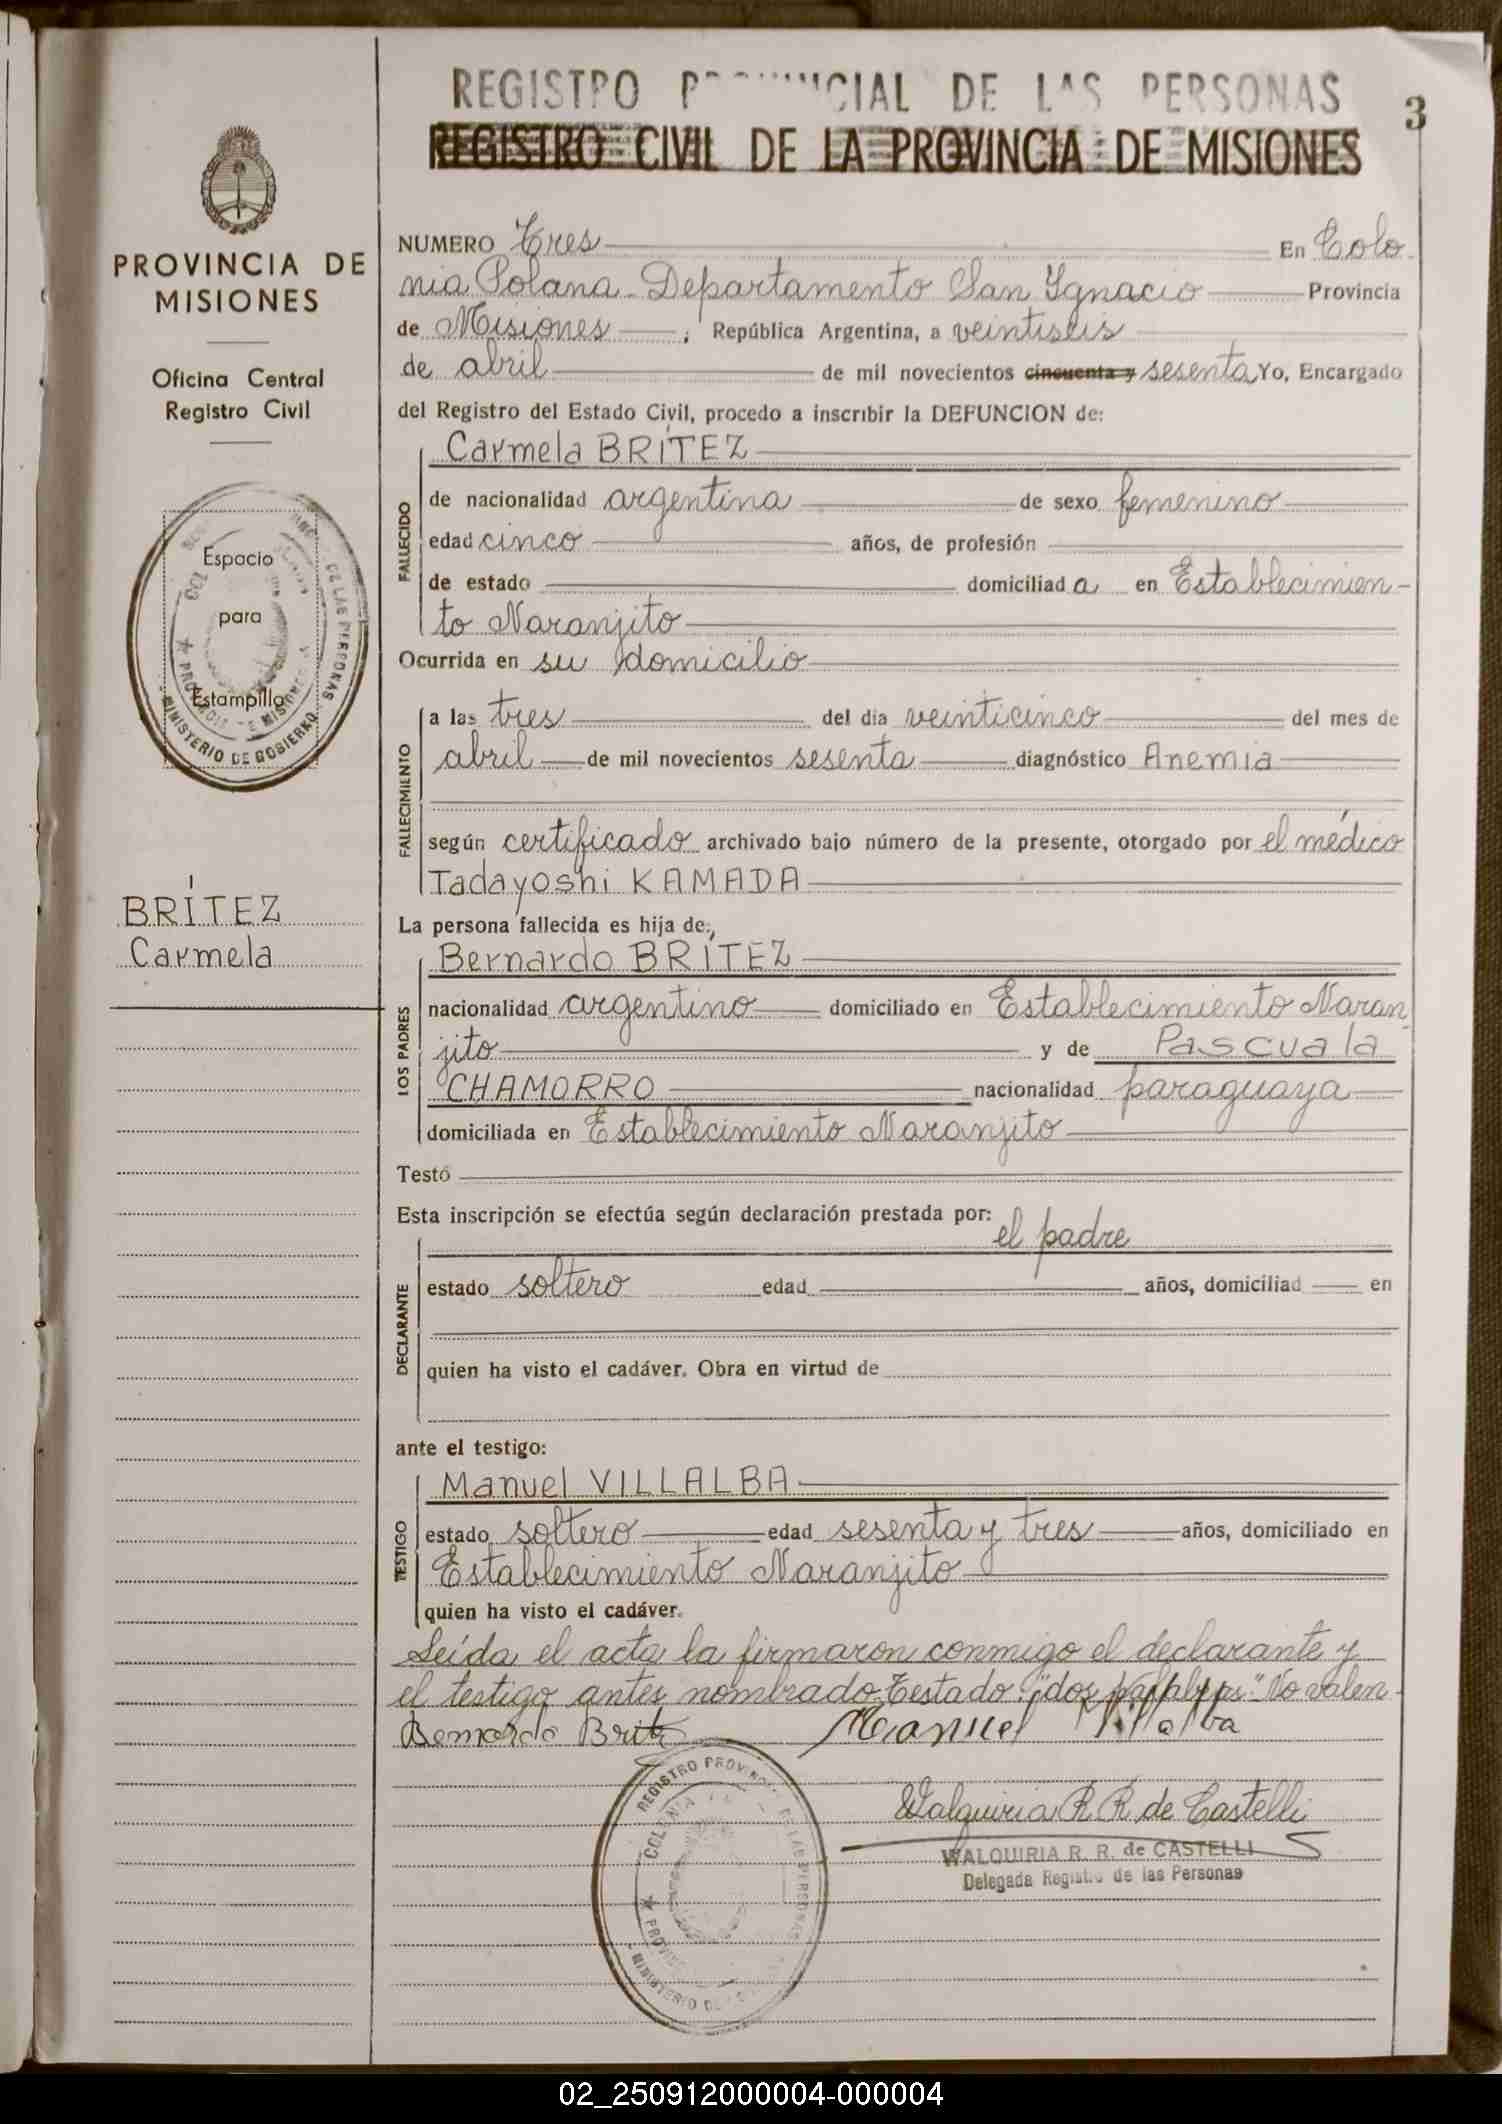 REGISTRO PROVINCIAL DE LAS PERSONAS
3
REGISTRO CIVIL DE LA PROVINCIA DE MISIONES
PROVINCIA DE
MISIONES
Oficina Central
Registro Civil
Espacio
para
Estampilla
PROVINCIA DE MISIONES
MINISTERIO DE GOBIERNO
DE LAS PERSONAS
BRÍTEZ
Carmela
NUMERO Tres En Colo
nia Polana - Departamento San Ignacio Provincia
de Misiones ; República Argentina, a veintiseis
de abril de mil novecientos cincuenta y sesenta Yo, Encargado
del Registro del Estado Civil, procedo a inscribir la DEFUNCION de:
FALLECIDO
Carmela BRÍTEZ
de nacionalidad argentina de sexo femenino
edad cinco años, de profesión
de estado domiciliad a en Establecimien-
to Naranjito
Ocurrida en su domicilio
FALLECIMIENTO
a las tres del día veinticinco del mes de
abril de mil novecientos sesenta diagnóstico Anemia
según certificado archivado bajo número de la presente, otorgado por el médico
Tadayoshi KAMADA
La persona fallecida es hija de:
LOS PADRES
Bernardo BRÍTEZ
nacionalidad argentino domiciliado en Establecimiento Naran-
jito y de Pascuala
CHAMORRO nacionalidad paraguaya
domiciliada en Establecimiento Naranjito
Testó
Esta inscripción se efectúa según declaración prestada por:
DECLARANTE
el padre
estado soltero edad años, domiciliad en
quien ha visto el cadáver. Obra en virtud de
ante el testigo:
TESTIGO
Manuel VILLALBA
estado soltero edad sesenta y tres años, domiciliado en
Establecimiento Naranjito
quien ha visto el cadáver.
Leída el acta la firmaron conmigo el declarante y
el testigo antes nombrado. Testado: "dos palabras". No valen
Bernardo Britez Manuel Villalba
REGISTRO PROVINCIAL DE LAS PERSONAS
COLONIA
MINISTERIO DE
Walquiria R R de Castelli
WALQUIRIA R. R. de CASTELLI
Delegada Registro de las Personas
02_250912000004-000004